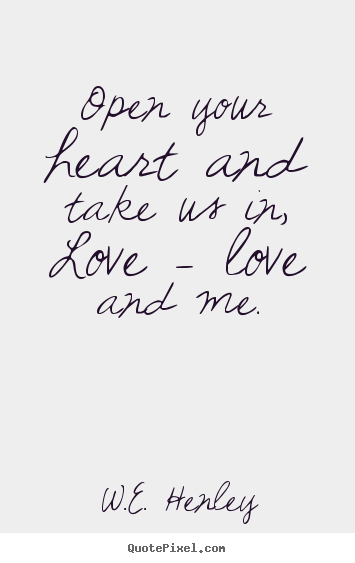 Open your
heart and
take us in,
Love - love
and me.
W.E. Henley
QuotePixel.com